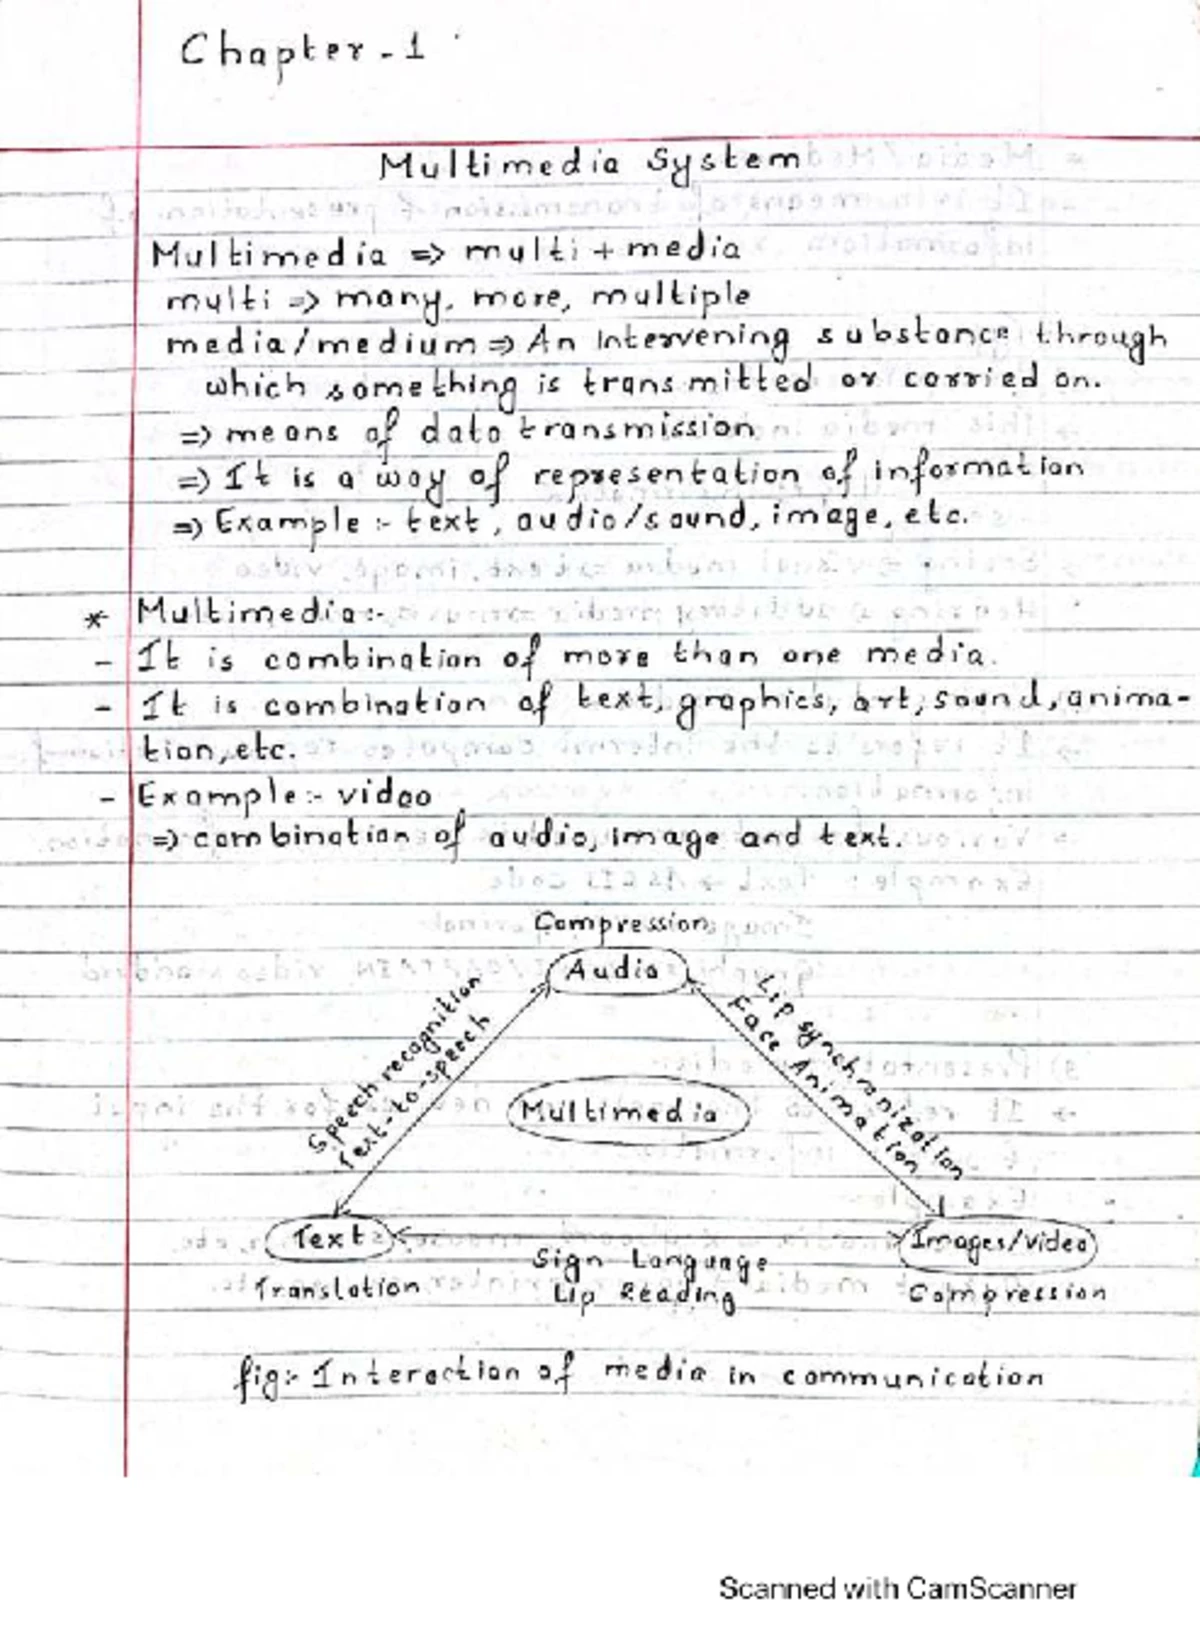 Chapter-1
Multimedia System
Multimedia => multi + media
multi => many, more, multiple
media/medium => An Intervening substance through
which something is transmitted or carried on.
=> means of data transmission
=> It is a way of representation of information
=> Example :- text, audio/sound, image, etc.
* Multimedia:-
- It is combination of more than one media.
- It is combination of text, graphics, art, sound, anima-
tion, etc.
- Example:- video
=> combination of audio, image and text.
Compression
Audio
Speech recognition
Text-to-speech
Lip synchronization
Face Animation
Multimedia
Text
Images/Video
Sign Language
Translation
Lip Reading
Compression
fig:- Interaction of media in communication
Scanned with CamScanner